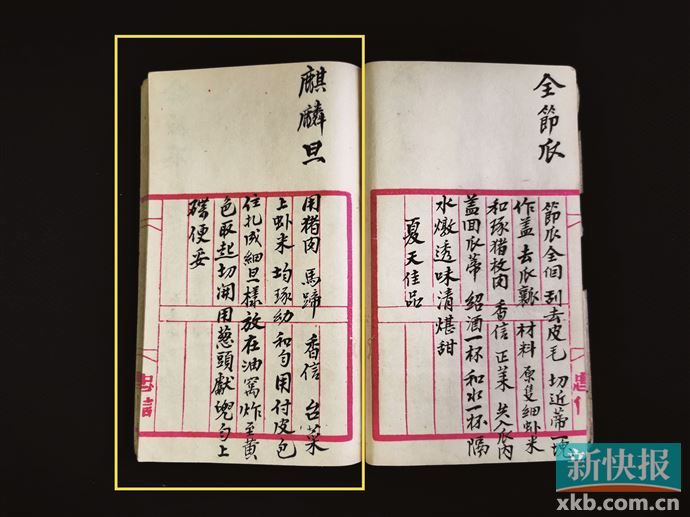 全節瓜
節瓜全個 刮去皮毛 切近蒂一塊
作蓋 去瓜瓤 材料 原隻細虾米
和琢猪枚肉 香信 正菜 矢入瓜内
蓋回瓜蒂 紹酒一杯 和水一杯 隔
水燉透味清堪甜
夏天佳品
麒麟旦
用猪肉 馬蹄 香信 台菜
上虾米 均琢幼 和匀用付皮包
住扎成細旦樣放在油窝炸至黄
色取起切開用葱頭獻兜匀上
碟便妥
忠信
忠信
新快报
xkb.com.cn